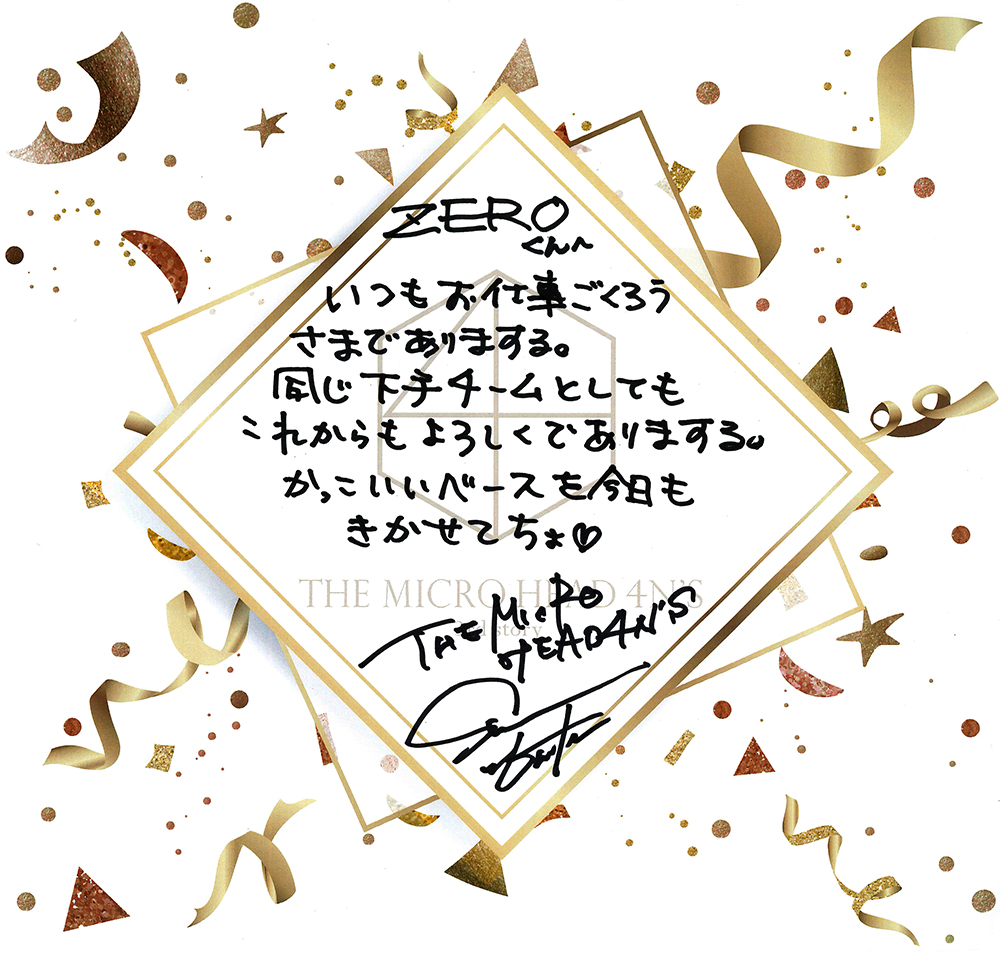 ZERO
くん〜
いつもお仕事ごくろう
さまでありまする。
同じ下手チームとしても
これからもよろしくでありまする。
かっこいいベースを今日も
きかせてちょ♡
THE MICRO HEAD 4N'S
story
THE MicRO
HEAD4N'S